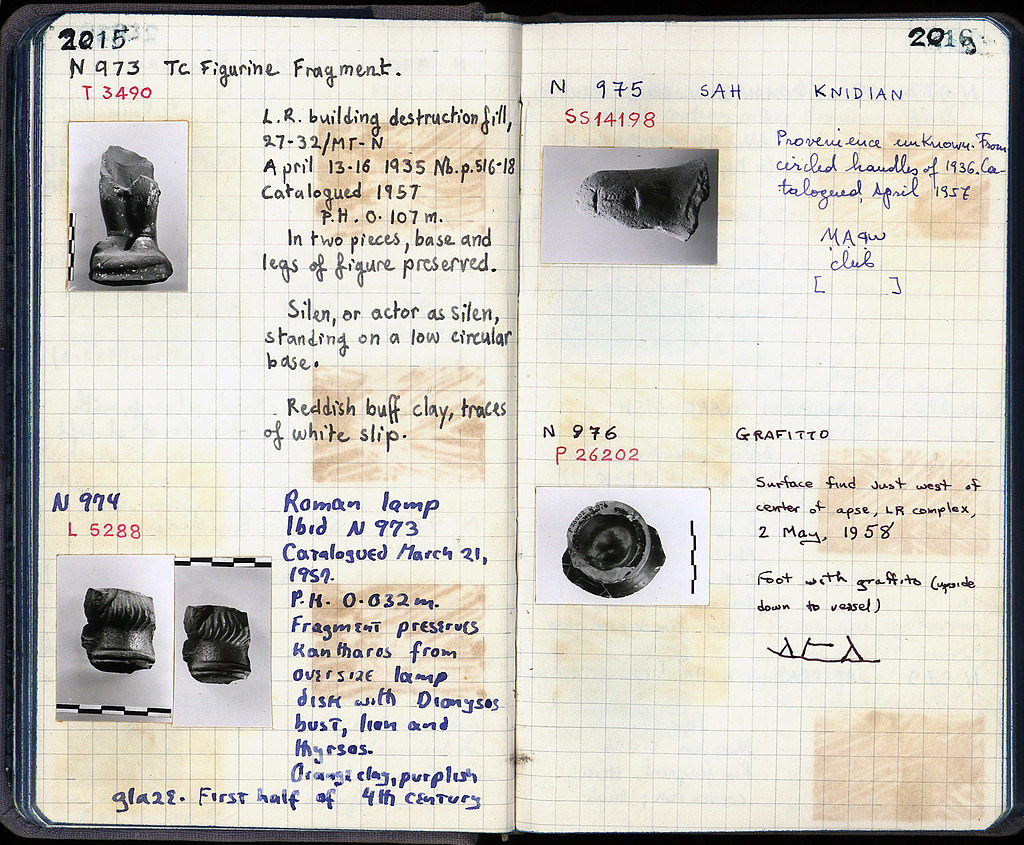 2015
N 973 Tc Figurine Fragment.
T 3490
L.R. building destruction fill,
27-32/MΓ-N
April 13-16 1935 Nb.p.516-18
Catalogued 1957
P.H. 0.107 m.
In two pieces, base and
legs of figure preserved.
Silen, or actor as silen,
standing on a low circular
base.
Reddish buff clay, traces
of white slip.
N 974
L 5288
Roman lamp
Ibid N 973
Catalogued March 21,
1957.
P.H. 0.032 m.
Fragment preserves
Kantharos from
oversize lamp
disk with Dionysos
bust, lion and
thyrsos.
Orange clay, purplish
glaze. First half of 4th century
2016
N 975 SAH KNIDIAN
SS14198
Provenience unknown. From
circled handles of 1936. Ca-
talogued, April 1957
club
[ ]
N 976 GRAFITTO
P 26202
Surface find just west of
center of apse, LR complex,
2 May, 1958
Foot with graffito (upside
down to vessel)